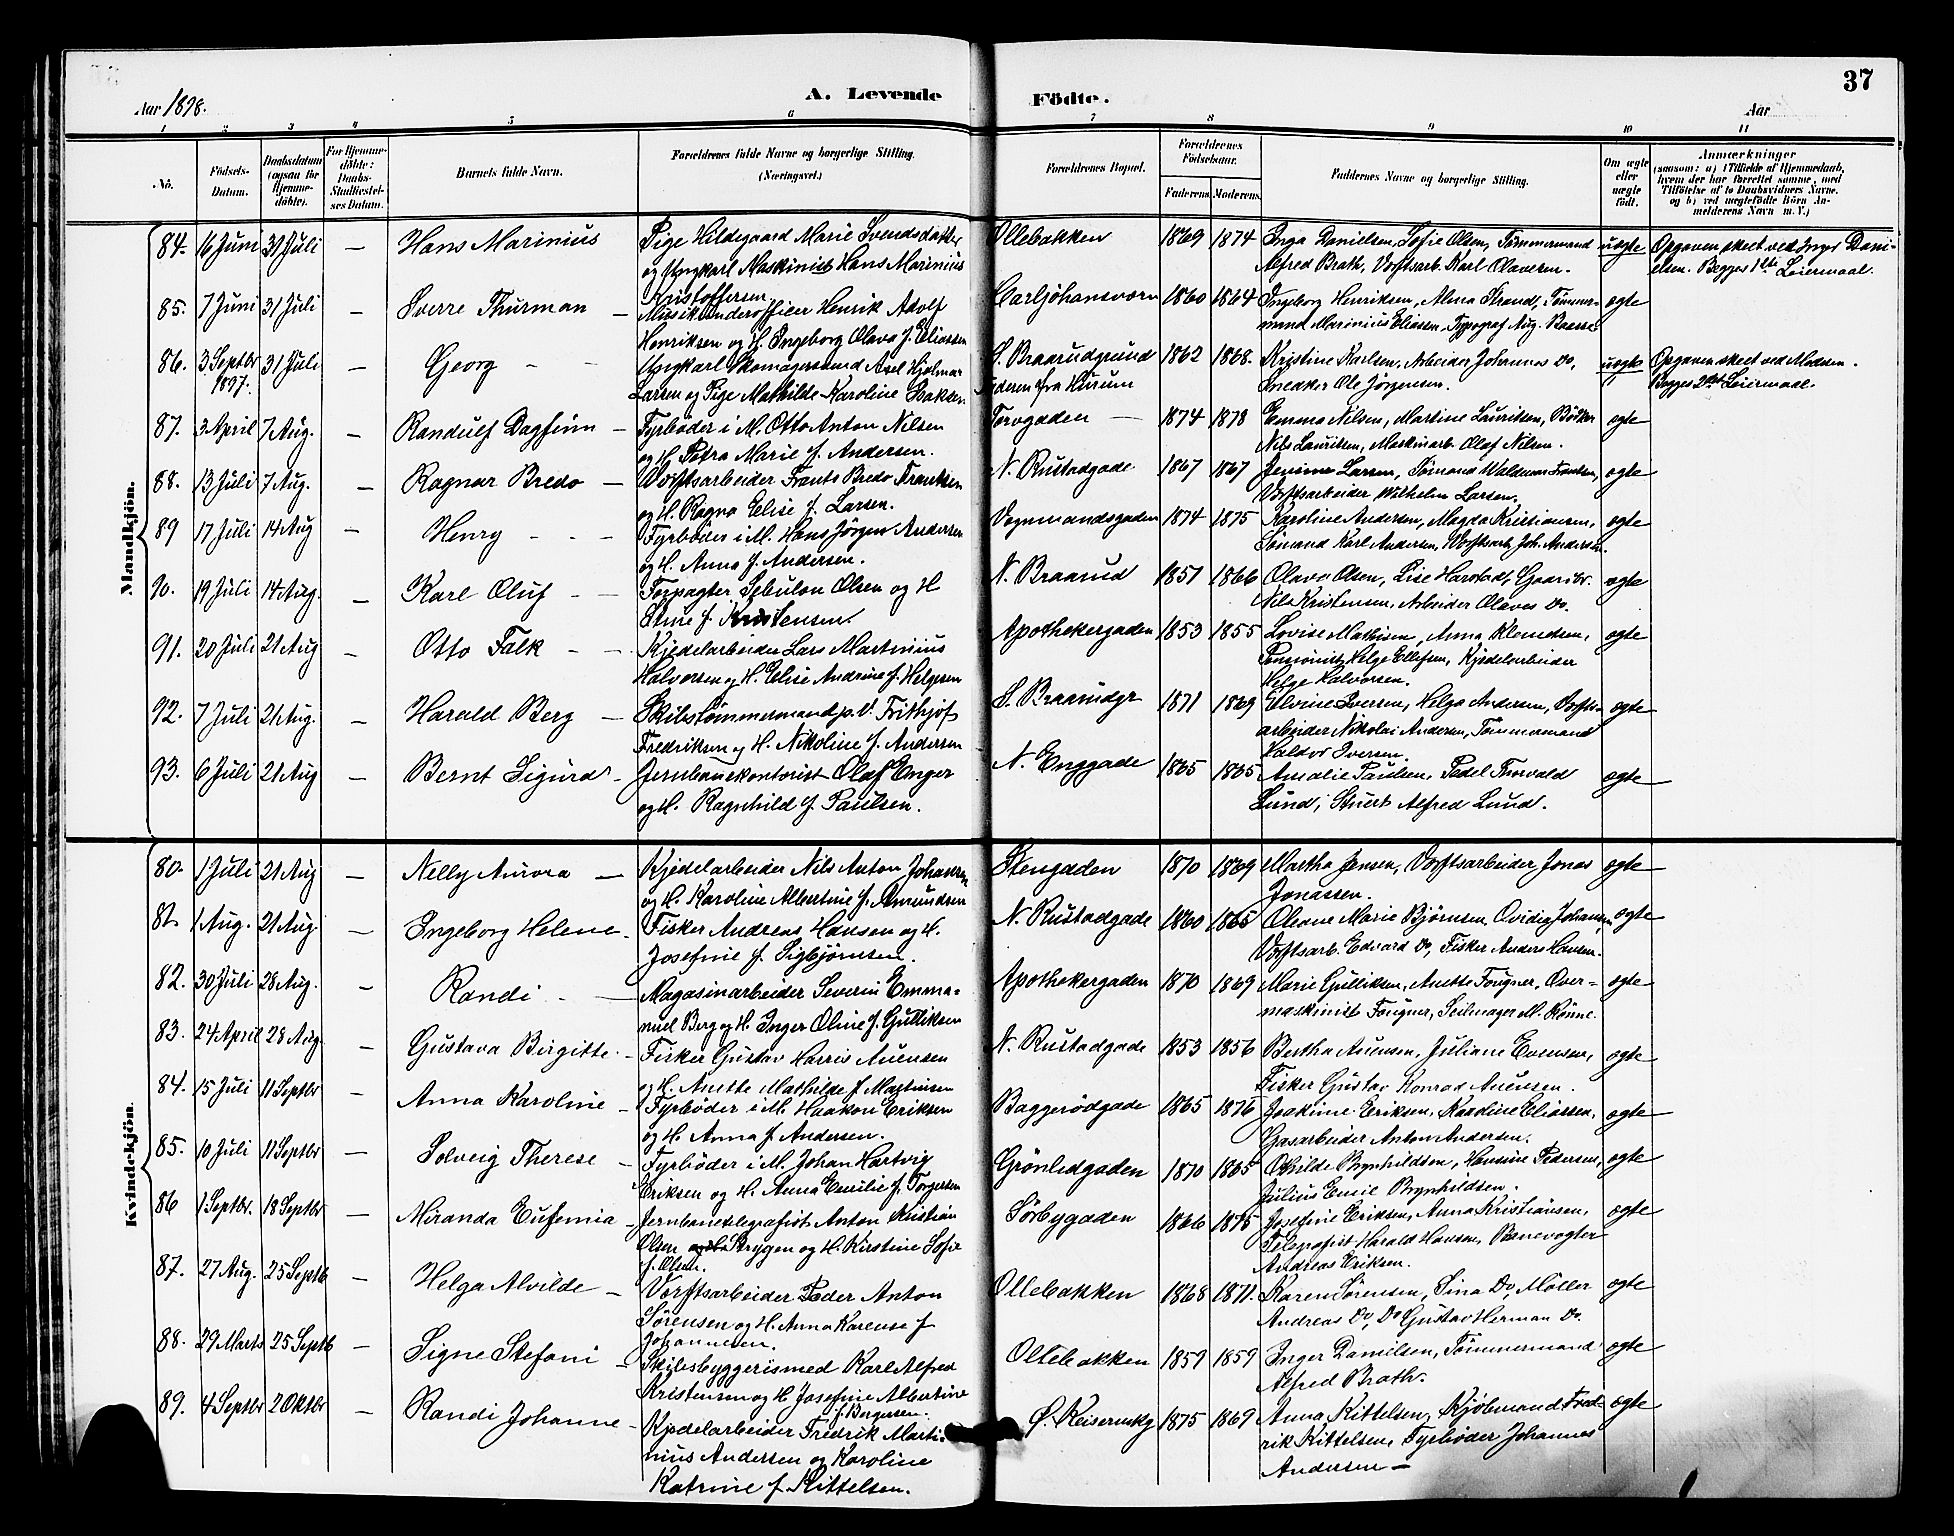 37
Aar 1898.
A. Levende Födte.
Aar
1 2 3 4 5 6 7 8 9 10 11
No.
Födsels-Datum.
Daabsdatum (ogsaa for Hjemme-döbte).
For Hjemme-döbte: Daabs-Stadfæstel-ses Datum.
Barnets fulde Navn.
Forældrenes fulde Navne og borgerlige Stilling.
(Næringsvei.)
Forældrenes Bopæl.
Forældrenes Födselsaar.
Faderens Moderens
Faddernes Navne og borgerlige Stilling.
Om ægte eller uægte født.
Anmærkninger
(saasom: a) i Tilfælde af Hjemmedaab,
hvem der har forrettet samme, med
Tilföielse af to Daabsvidners Navne,
og b) ved uægtefödte Börn An-
melderens Navn m. V.)
Mandkjön.
84. 16 Juni 31 Juli — Hans Marinius Pige Hildegaard Marie Svendsdatter Ollebakken 1869 1874 Inga Danielsen, Sofie Olsen, Tømmermand uægte Opgaven skeet ved Inger Dani-
og Ungkarl Maskinist Hans Marinius Alfred Brath, Værftsarb. Karl Olavesen. elsen. Begges 1ste Leiermaal.
Kristoffersen
85. 7 Juni 31 Juli — Sverre Thurman — Musikunderofficer Henrik Adolf Carljohansværn 1860 1864 Ingeborg Henriksen, Alma Strand, Tømmer- ægte
Henriksen og H. Ingeborg Olava f. Eliassen mand Marinius Eliassen, Typograf Aug.
86. 3 Septbr 1897. 31 Juli — Georg — Ungkarl Skomagersvend Axel Hjalmar S. Braarudgrund 1862 1868. Kristine Karlsen, Arbeider Johannes Do, uægte Opgaven skeet ved Modren.
Larsen og Pige Mathilde Karoline Isaksen Faderen fra Hurum Snedker Ole Jørgensen. Begges 2det Leiermaal.
87. 3 April 7 Aug. — Randulf Dagfinn — Fyrbøder i M. Otto Anton Nilsen Torvgaden — 1874 1878 Emma Nilsen, Martine Lauritsen, Bødker ægte
og H. Petra Marie f. Andersen. Nils Lauritsen, Maskinarb. Olaf Nilsen.
88. 13 Juli 7 Aug. — Ragnar Bredo — Værftsarbeider Frants Bredo Frantsen N. Rustadgade 1867 1867 Larsen, Sømand Waldemar Frantsen, ægte
og H. Ragna Elise f. Larsen. Værftsarbeider Wilhelm Larsen.
89 17 Juli 14 Aug — Henry — Fyrbøder i M. Hans Jørgen Andersen Vognmandsgaden 1874 1875 Karoline Andersen, Magda Kristiansen, ægte
og H. Anna f. Andersen. Sømand Karl Andersen, Værftsarb. Joh. Andersen.
90. 19 Juli 14 Aug. — Karl Oluf — Forpagter Sebulon Olsen og H N. Braarud 1851 1866 Olava Olsen, Lise Harstad, Gaardbr. ægte
Stine f. Kristensen. Nils Kristensen, Arbeider Olaves Do.
91. 20 Juli 21 Aug — Otto Falk — Kjedelarbeider Lars Martinius Apothekergaden 1853 1855 Lovise Mathisen, Anna Klemdsen, ægte
Halvorsen og H. Elise Andrine f. Helgesen Pensionist Helge Ellefsen, Kjedelarbeider
Helge Halvorsen.
92. 7 Juli 21 Aug. — Harald Berg — Skibstømmermand p. V. Frithjof S. Braarudgr 1871 1869 Elvine Iversen, Helga Andersen, Værfts- ægte
Fredriksen og H. Nikoline f. Andersen arbeider Nikolai Andersen, Tømmermand
Haldor Iversen.
93. 6 Juli 21 Aug — Bernt Sigurd — Jernbanekontorist Olaf Enger N. Enggade 1865 1865 Amalie Paulsen, Padel Thorvald ægte
og H. Ragnhild f. Paulsen. Lund, Stuert Alfred Lund.
Kvindekjön.
80. 1 Juli 21 Aug — Nelly Aurora — Kjedelarbeider Nils Anton Johansen Stengaden 1870 1869 Martha Jensen, Værftsarbeider Jonas ægte
og H. Karoline Albertine f. Amundsen Jonassen.
81. 1 Aug. 21 Aug. — Ingeborg Helene — Fisker Andreas Hansen og H. N. Rustadgade 1860 1865 Oleane Marie Bjørnsen, Ovidia Johansen, ægte
Josefine f. Sigbjørnsen. Værftsarb. Edvard Do, Fisker Anders Hansen.
82. 30 Juli 28 Aug. — Randi — Magasinarbeider Severin Emma- Apothekergaden 1870 1869 Marie Gulliksen, Anette Fougner, Over- ægte
nuel Berg og H. Inger Oline f. Gulliksen maskinist Fougner, Seilmager M. Rønne.
83. 24 April 28 Aug. — Gustava Birgitte — Fisker Gustav Harris Auensen N. Rustadgade 1853 1856 Bertha Auensen, Juliane Evensen, ægte
og H. Anette Mathilde f. Martinsen Fisker Gustav Konrad Auensen.
84. 15 Juli 11 Septbr — Anna Karoline — Fyrbøder i M. Haakon Eriksen Baggerødgade 1865 1876 Joakime Eriksen, Karoline Eliassen, ægte
og H. Anna f. Andersen. Gasarbeider Anton Andersen.
85. 10 Juli 11 Septbr — Solveig Therese — Fyrbøder i M. Johan Hartvig Grönlidgaden 1870 1865 Othilde Brynhildsen, Hansine Pedersen, ægte
Eriksen og H. Anna Emilie f. Torgersen Julius Emil Brynhildsen.
86 1 Septbr. 18 Septbr — Miranda Eufemia — Jernbanetelegrafist Anton Kristian Sørbygaden 1866 1875 Josefine Eriksen, Anna Kristiansen, ægte
Olsen Strygen og H. Kirstine Sofie Telegrafist Harald Hansen, Banevogter
f. Olsen. Andreas Eriksen.
87. 27 Aug. 25 Septb — Helga Alvilde — Værftsarbeider Peder Anton Ollebakken 1868 1871. Karen Sørensen, Sina Do, Møller ægte
Sørensen og H. Anna Karense f Andreas Do, Do Gustav Herman Do.
Johannesen.
88. 29 Marts 25 Septb — Signe Stefani — Skibsbyggerismed Karl Alfred Ollebakken 1857 1859 Inger Danielsen, Tømmermand ægte
Kristensen og H. Josefine Albertine Alfred Brath.
f. Bergersen.
89. 4 Septbr 2 Oktbr — Randi Johanne — Kjedelarbeider Fredrik Marti- Ø. Keisemakg 1875 1869 Anna Kittelsen, Kjøbmand Fred- ægte
nius Andersen og Karoline rik Kittelsen, Fyrbøder Johannes
Katrine f. Kittelsen. Andersen —